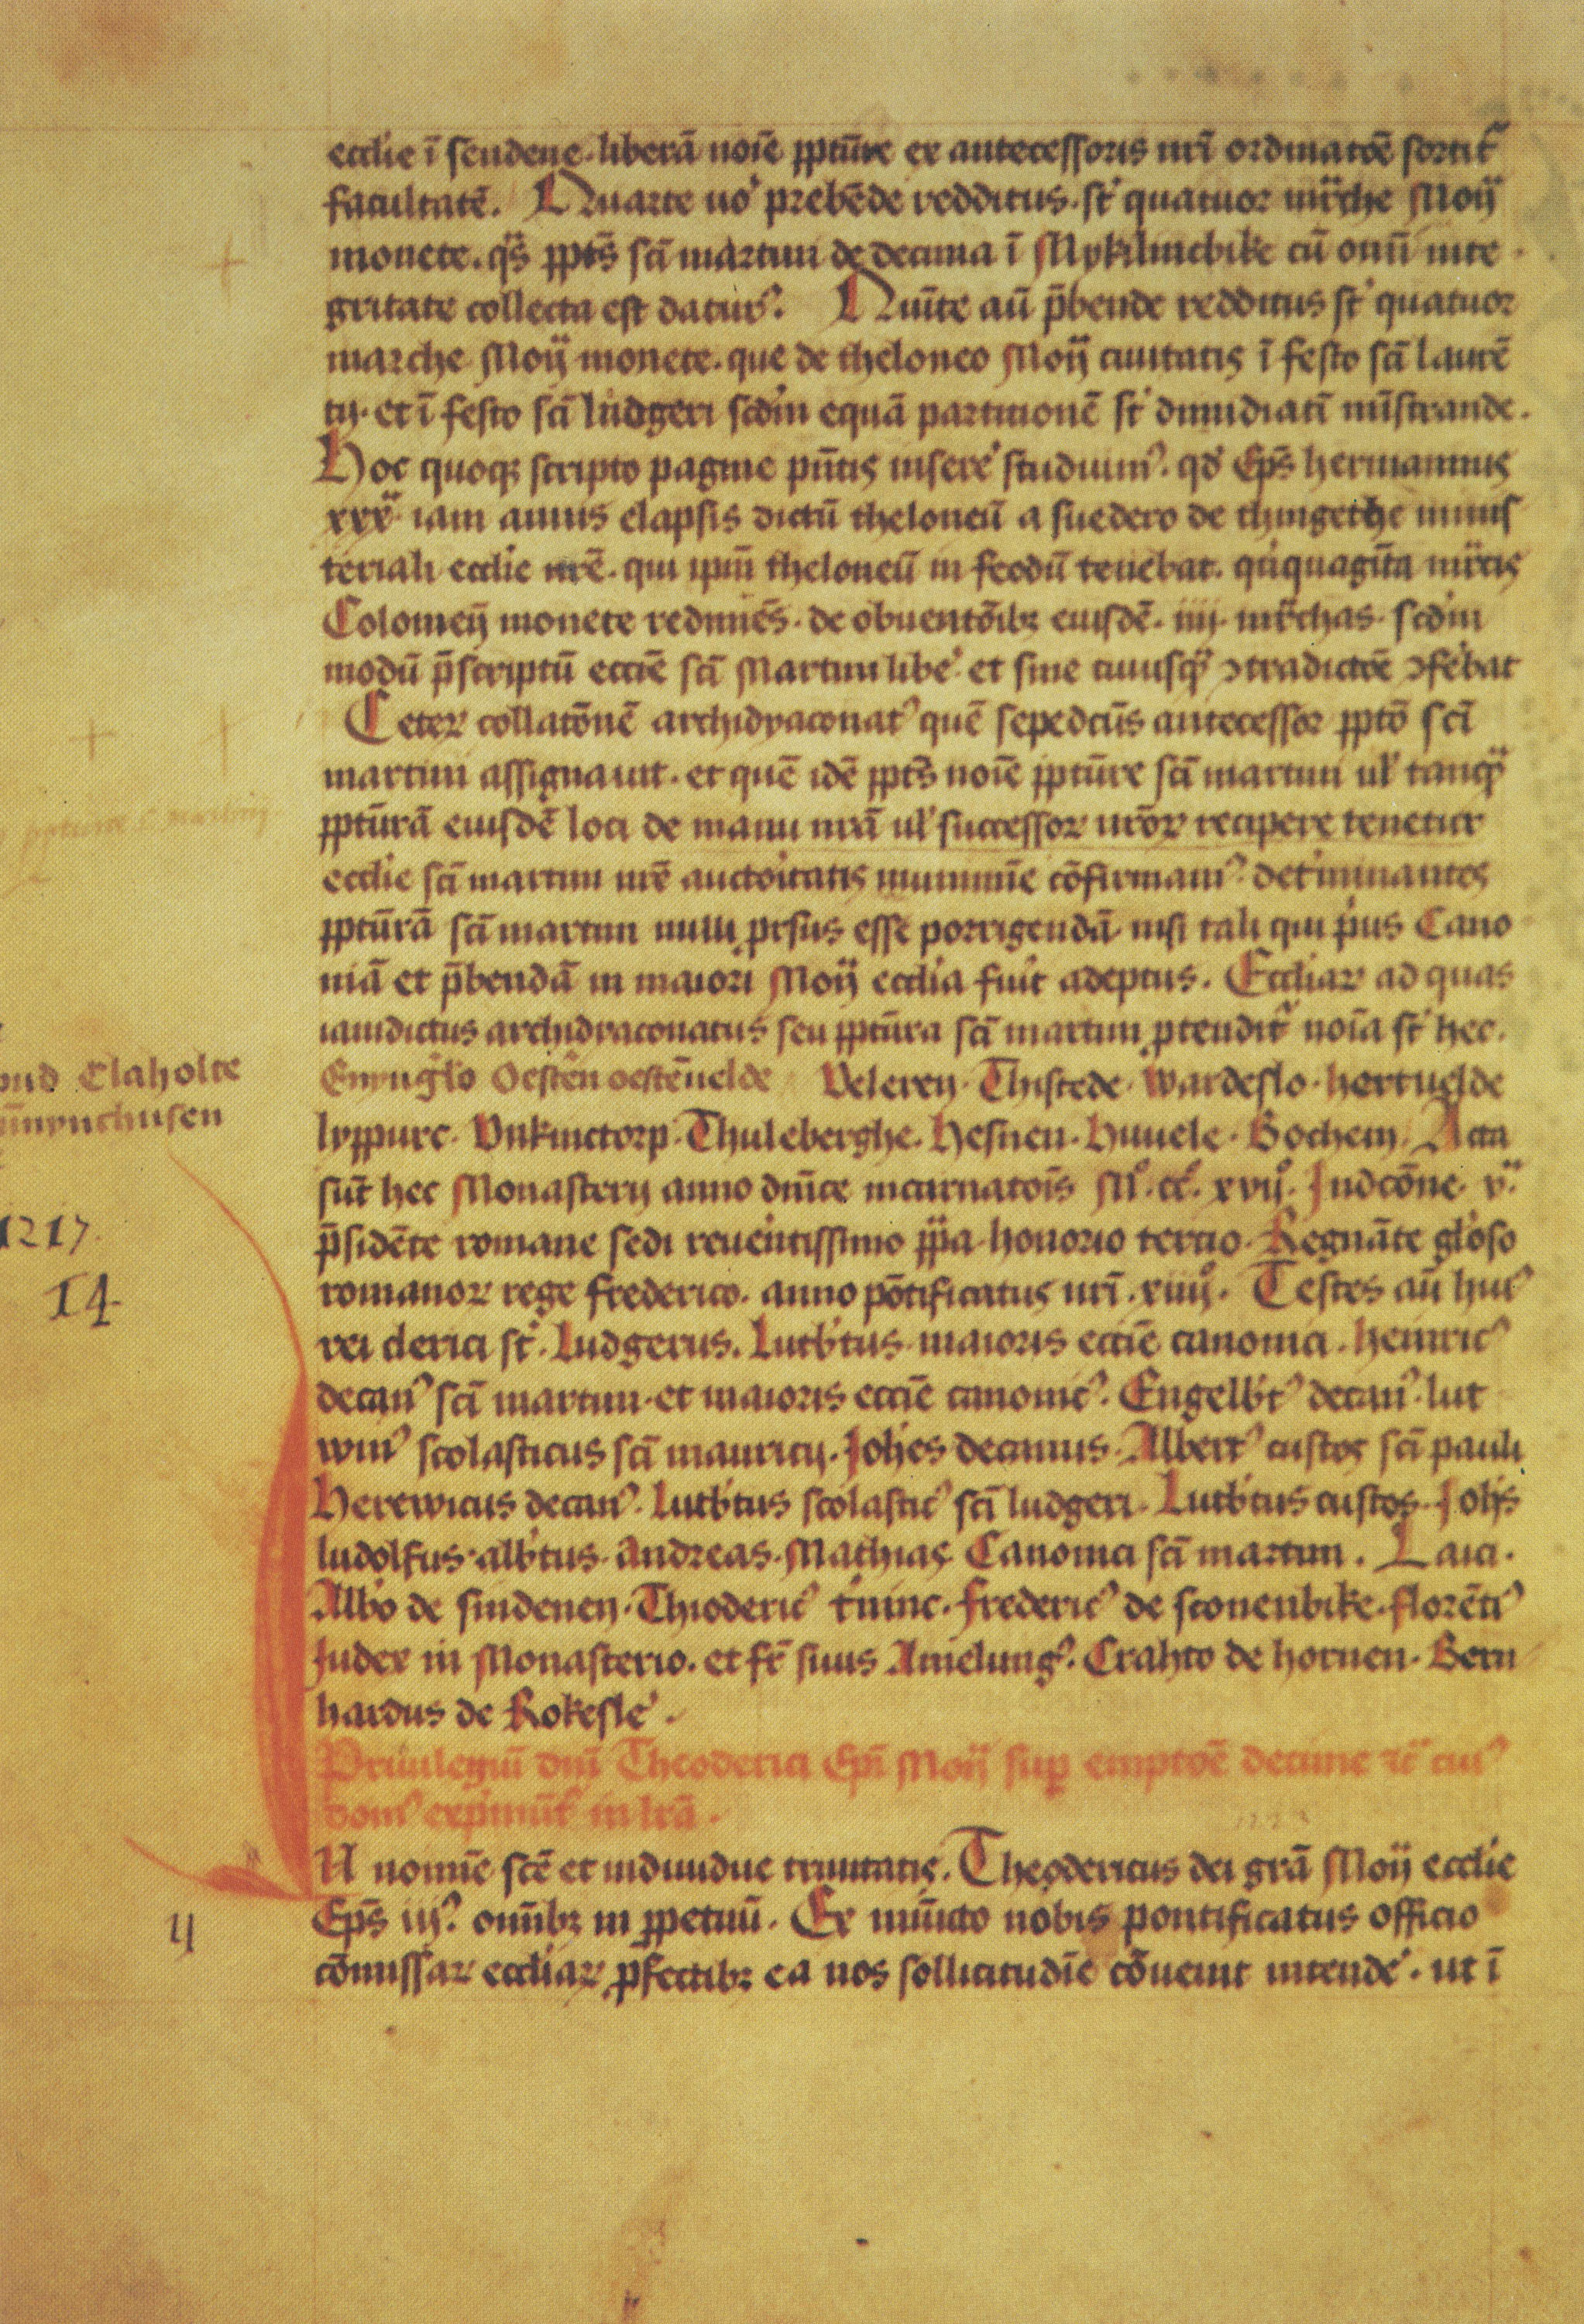 ecclie ī sendene. liberā noīe ppitūre ex antecessoris nr̄i ordinatōe sortit᷑
facultatē. Quarte uo᷑ prebēde redditus. st᷑ quatuor mr̄che Moñ
monete. qͣs ppts̄ sc̄i martini de decima ī cū om̄i inte
gritate collecta est datur᷒. Quīte aū p̄bende redditus st᷑ quatuor
marche Moñ monete. que de theloneo Moñ ciuitatis ī festo sc̄i laurē
tij. et ī festo sc̄i ludgeri scd̄m equā partitionē st᷑ dimidiatī mīstrande.
Hoc quoqꝫ scripto pagine pn̄tis insere᷑ studuim᷒. qd᷑ Ep̄s hermannus
xxxͣ iam annis elapsis dictū theloneū a suedero de thingethe minis
teriali ecclie nr̄e. qui ipm̄ theloneū in feodū tenebat. qͥquagīta mr̄cis
Colonieñ monete redimēs. de obuentōibꝫ eiusdē. iiij. mr̄chas. scd̄m
modū p̄scriptū eccīe sc̄i Martini libe᷑ et sine cuiusqͣ ꝯtradictōe ꝯfe᷑bat
Ceterꝝ collatōnē archidyaconat᷒ quē sepedcūs antecessor ppto᷑ sc̄i
martini assignauit. et quē idē ppts̄ noīe pptūre sc̄i martini ul᷑ tanqͣ
pptūrā eiusdē loci de manu nr̄a ul᷑ successoꝝ nr̄oꝝ recipere tenetur
ecclie sc̄i martini nr̄e auctoritatis munimīe cōfirmam᷒. det᷑minantes
pptūrā sc̄i martini nulli ꝓrsus esse porrigendā nisi tali qui pͥus Cano
niā et p̄bendā in maiori Moñ ecclia fuit adeptus. Eccliaꝝ ad quas
iamdictus archidyaconatus seu pptūra sc̄i martini ꝓtendit᷑ noīa st᷑ hec.
Enyng᷑lo Oestēn oestēuelde Velereñ. Thistede. Wardeslo. hertuelde
lyppurc. Vnkinctorp. Thuleberghe. Hesnen. Huuele. Bochem. Acta
sūt hec Monasterij anno dn̄ice incarnatoīs M̊. cc̊. xvij̊. Indcōne. vͣ.
p̄sidēte romane sedi reue᷑ntissimo ppa honorio tercio. Regnāte glo᷑so
romanoꝝ rege frederico. anno pōtificatus nr̄i. xiiij̊. Testes aū hui᷒
rei clerici st᷑. Ludgerus. Lutb᷑tus. maioris eccīe canonici. heinric᷒
decan᷒ sc̄i martini. et maioris eccīe canonic᷒. Engelb᷑t᷒ decan᷒. lut
win᷒ scolasticus sc̄i mauricij. Joh̄es decanus. Albert᷒ custos sc̄i pauli
Herewicus decan᷒. Lutb᷑tus scolastic᷒ sc̄i ludgeri. Lutb᷑tus custos. Joh̄s
ludolfus. alb᷑tus. Andreas. Mathias. Canonici sc̄i martini. Laici.
Albo de sindeneñ. Thioderic᷒ Frederic᷒ de sconenbike. florēti᷒
Judex in Monasterio. et fr̄ suus Amelung᷒. Crahto de hornen. Bern
hardus de Rokesle᷑.
Priuilegiū dn̄i Theoderici Ep̄i Moñ sup emptōe decime
in lr̄ā.
N nomīe sc̄e et indiuidue trinitatis. Theodericus dei grā Moñ ecclie
Ep̄s iij᷒. om̄ibꝫ in ꝑpetuū. Ex iniūcto nobis pontificatus officio
cōmissaꝝ eccliaꝝ ꝓfectibꝫ ea nos sollicitudīe cōuenit intende᷑. ut ī
Claholte
1217.
14
ij